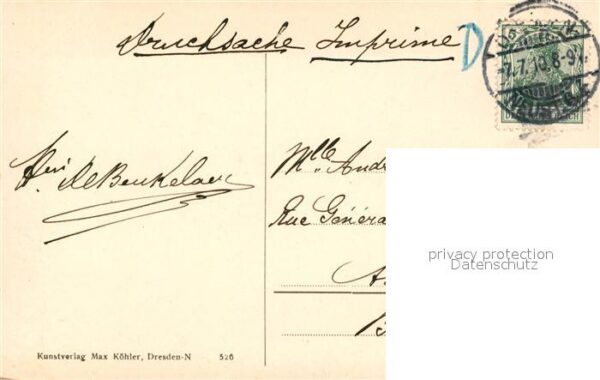 Drucksache Imprimé
7.7.10.8-9V.
De Beukelaer
Mlle. André
Rue Généra
A
B
privacy protection
Datenschutz
Kunstverlag Max Köhler, Dresden-N 526